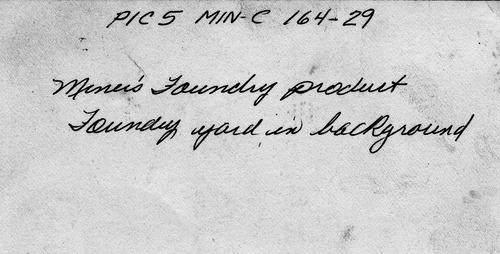 PIC 5 MIN-C 164-29
Miner's Foundry product
Foundry yard in background